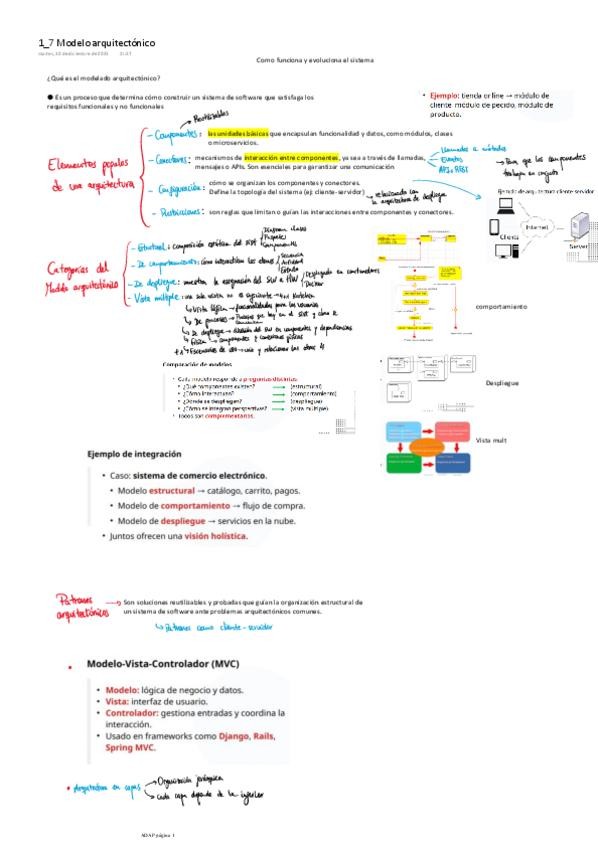 1_7 Modelo arquitectónico
Como funciona y evoluciona el sistema
¿Qué es el modelado arquitectónico?
● Es un proceso que determina cómo construir un sistema de software que satisfaga los
requisitos funcionales y no funcionales
• Ejemplo: tienda online → módulo de
cliente módulo de pedido, módulo de
producto.
Reutilizables
Elementos
de una arquitectura
- Componentes: las unidades básicas que encapsulan funcionalidad y datos, como módulos, clases
o microservicios.
- Conectores: mecanismos de interacción entre componentes, ya sea a través de llamadas,
mensajes o APIs. Son esenciales para garantizar una comunicación
Llamadas a métodos
Eventos
APIs REST
→ Para que los componentes
trabajen en conjunto
- Configuración: cómo se organizan los componentes y conectores.
Define la topología del sistema (ej: cliente-servidor)
relacionado con
la arquitectura de despliegue
- Restricciones: son reglas que limitan o guían las interacciones entre componentes y conectores.
Ejemplo de arquitectura cliente-servidor
Internet
Clients
Server
Categorías del
Modelo arquitectónico
- Estructural: composición estática del SIST
Diagrama clases
Paquetes
Componentes
- De comportamiento: cómo interactúan los elems
Secuencia
Actividad
Estado
- De despliegue: muestra la asignación del SW a HW
Desplegado en contenedores
Docker
- Vista múltiple: una sola vista no es suficiente → 4+1 Kruchten
Vista lógica → funcionalidades para los usuarios
De procesos → Procesos que hay en el SIST y cómo se
comunican
De despliegue → división del SW en componentes y dependencias
Física → componentes y conexiones físicas
+1 Escenarios de uso → une y relaciona las otras 4
comportamiento
Despliegue
Vista mult
Comparación de modelos
• Cada modelo responde a preguntas distintas
• ¿Qué componentes existen? → (estructural)
• ¿Cómo interactúan? → (comportamiento)
• ¿Dónde se despliegan? → (despliegue)
• ¿Cómo se integran perspectivas? → (vista múltiple)
• Todos son complementarios.
Ejemplo de integración
• Caso: sistema de comercio electrónico.
• Modelo estructural → catálogo, carrito, pagos.
• Modelo de comportamiento → flujo de compra.
• Modelo de despliegue → servicios en la nube.
• Juntos ofrecen una visión holística.
Patrones
arquitectónicos
→ Son soluciones reutilizables y probadas que guían la organización estructural de
un sistema de software ante problemas arquitectónicos comunes.
↳ Patrones como cliente-servidor
• Modelo-Vista-Controlador (MVC)
• Modelo: lógica de negocio y datos.
• Vista: interfaz de usuario.
• Controlador: gestiona entradas y coordina la
interacción.
• Usado en frameworks como Django, Rails,
Spring MVC.
• Arquitectura en capas
→ Organización jerárquica
→ Cada capa depende de la inferior
ADAP página 1